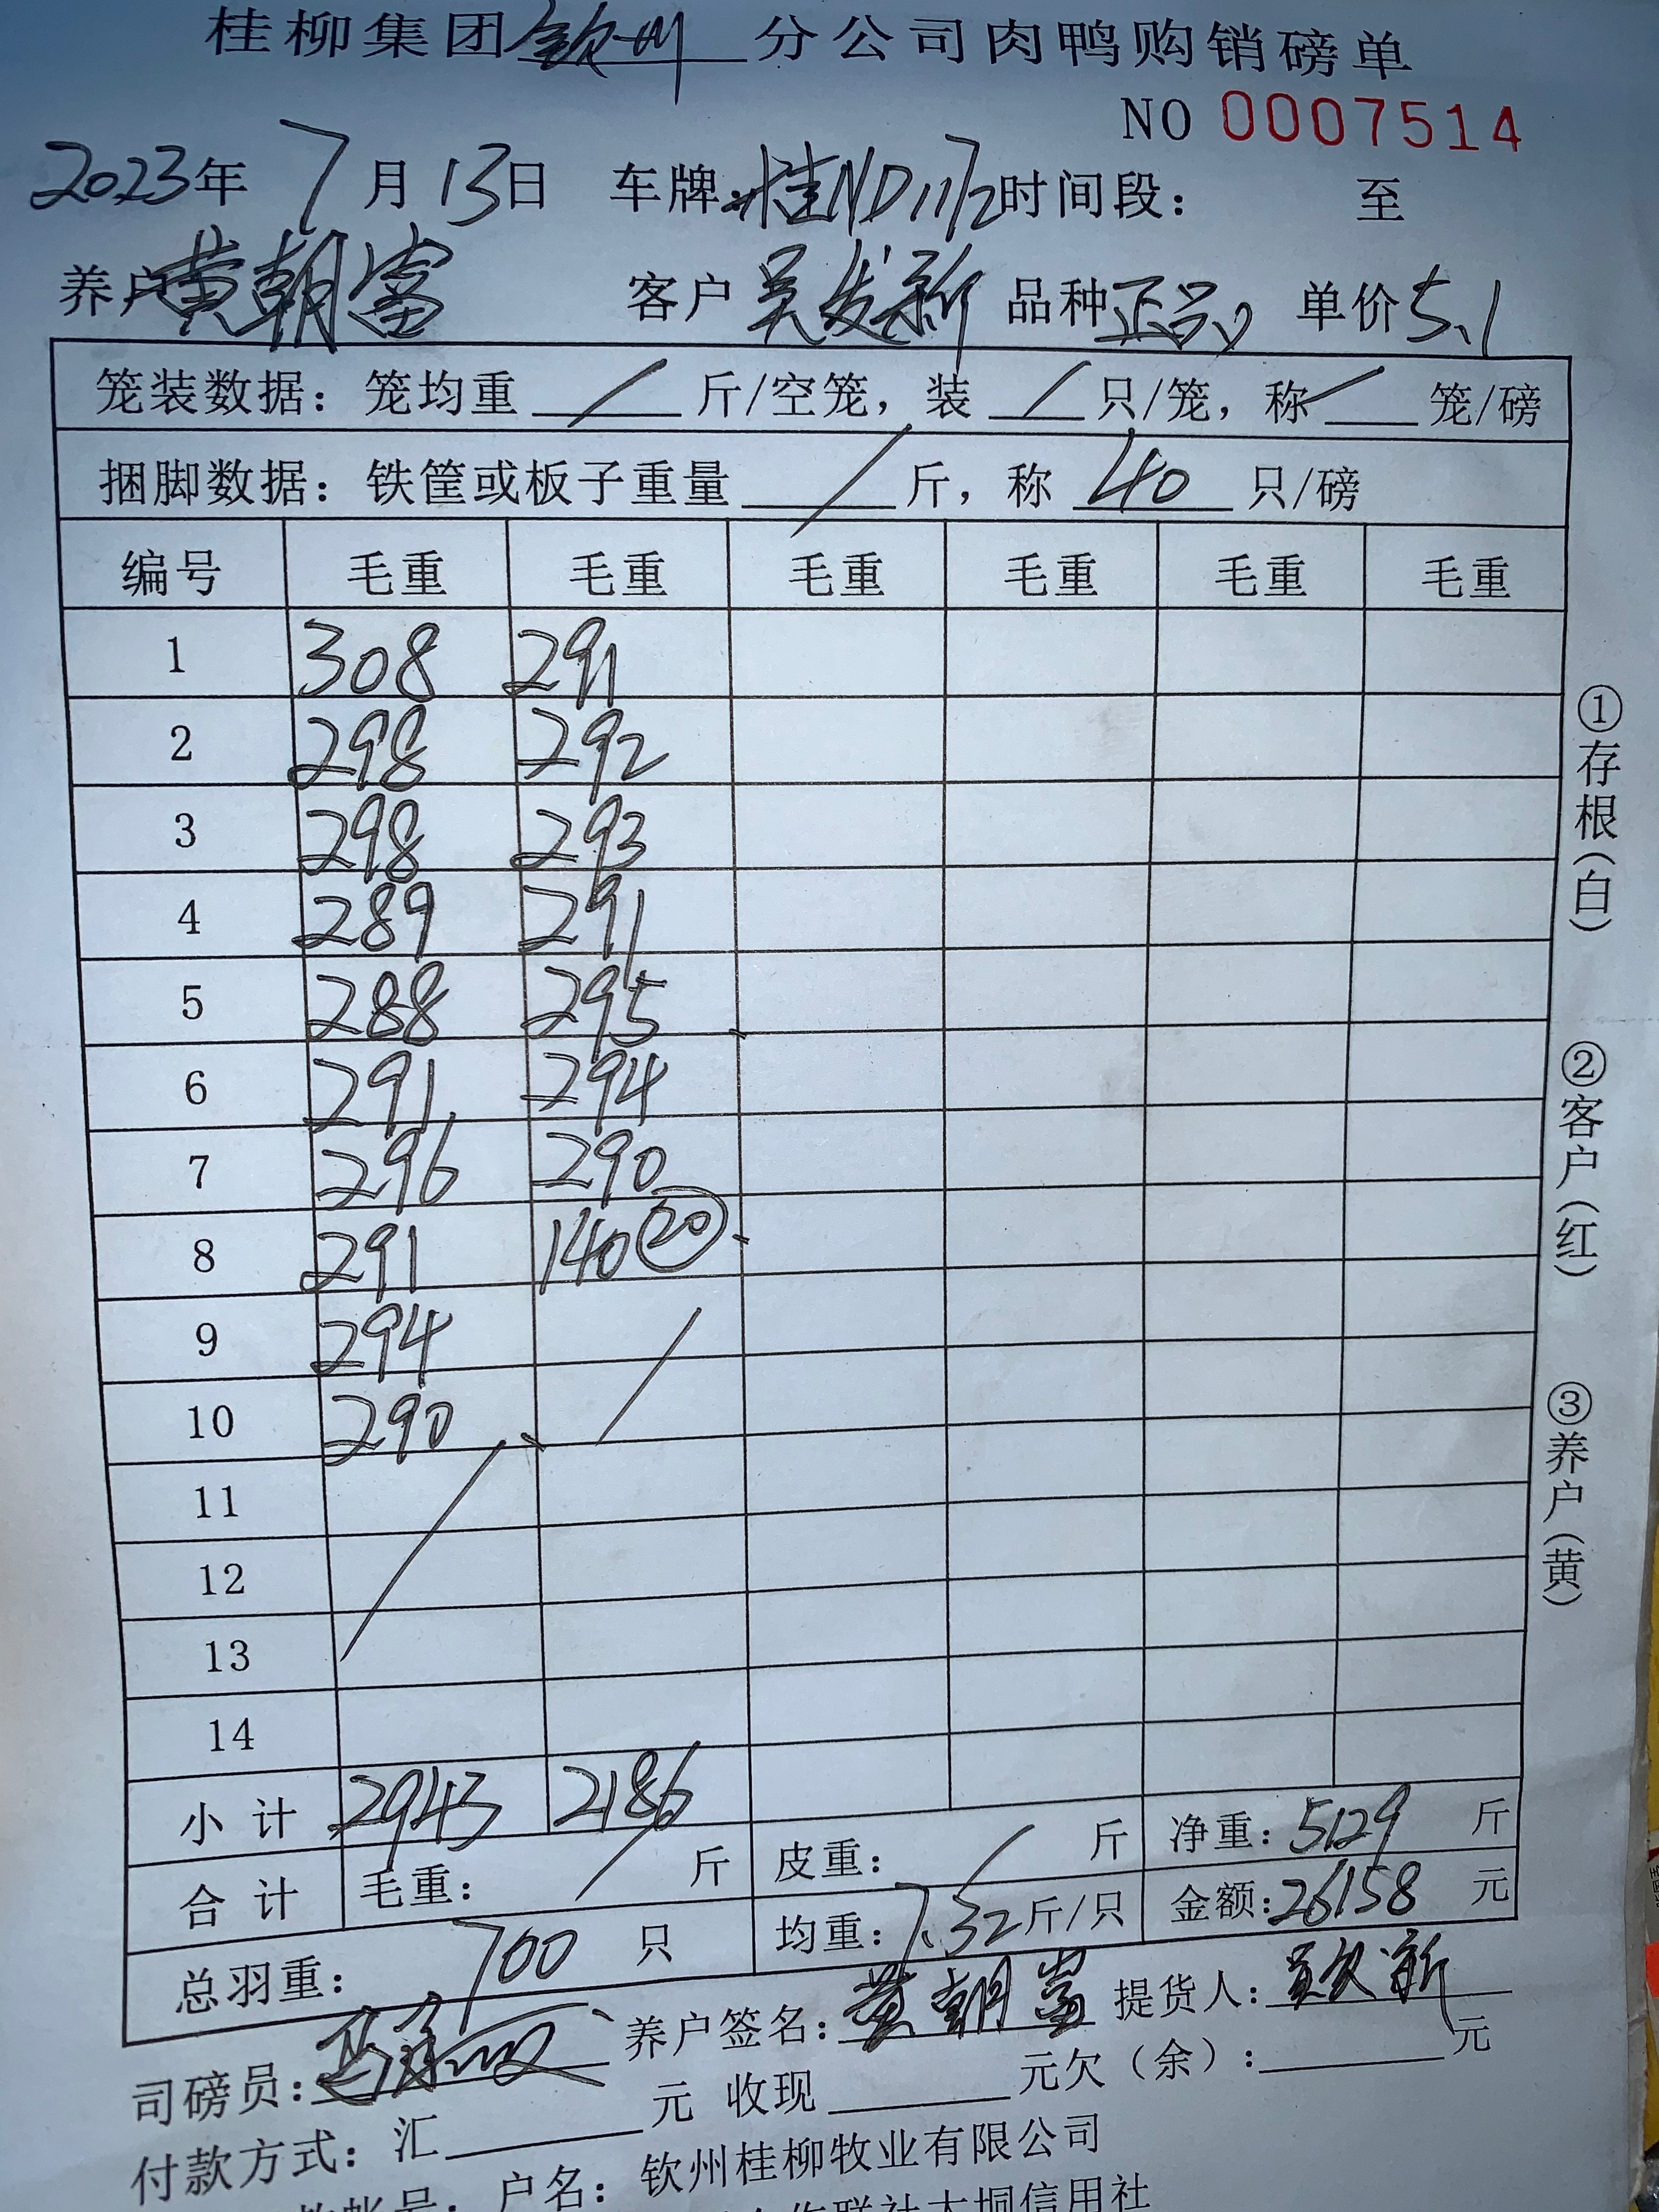 桂柳集团钦州分公司肉鸭购销磅单
NO 0007514
2023年 7月 13日 车牌:桂ND1172时间段: 至
养户黄朝富 客户吴发新 品种正品 单价5.1
笼装数据: 笼均重 / 斤/空笼, 装 / 只/笼, 称 / 笼/磅
捆脚数据: 铁筐或板子重量 / 斤, 称 40 只/磅
编号 毛重 毛重 毛重 毛重 毛重 毛重
1 308 291
2 298 292
3 298 293
4 289 291
5 288 295
6 291 294
7 296 290
8 291 140 20
9 294
10 290
11
12
13
14
小计 2943 2186
合计 毛重: / 斤 皮重: / 斤 净重: 5129 斤
总羽重: 700 只 均重: 7.32斤/只 金额: 26158 元
司磅员: 养户签名: 黄朝富 提货人: 吴发新
付款方式: 汇 元 收现 元欠(余): 元
户名: 钦州桂柳牧业有限公司
信用社
①存根(白)
②客户(红)
③养户(黄)